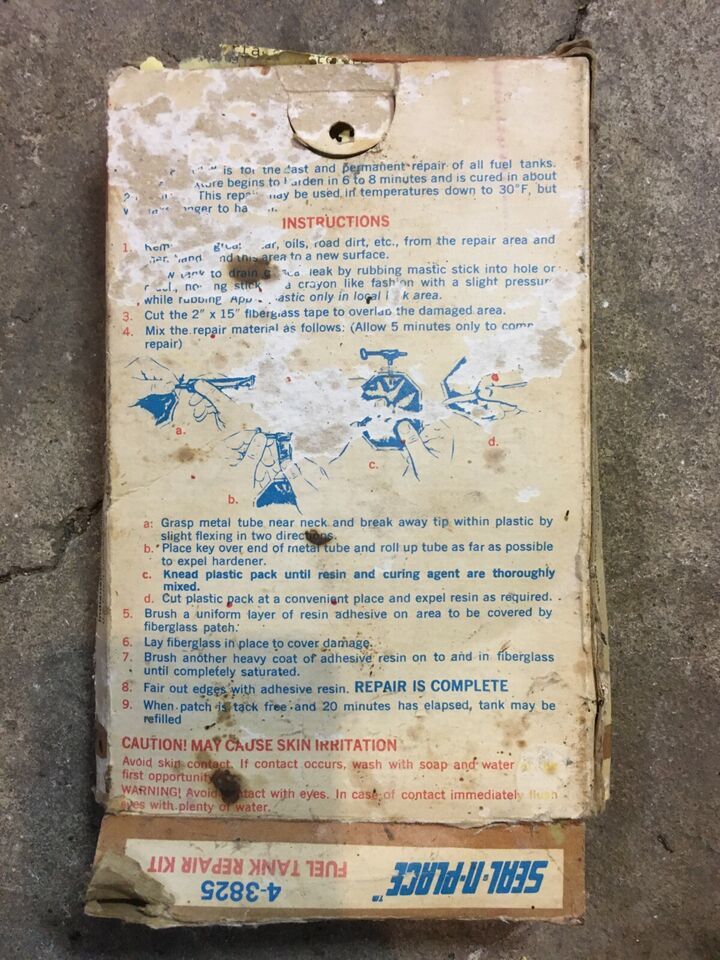 is for the fast and permanent repair of all fuel tanks.
begins to harden in 6 to 8 minutes and is cured in about
This repair may be used in temperatures down to 30°F, but
longer to
INSTRUCTIONS
1. tar, oils, road dirt, etc., from the repair area and
sand this area to a new surface.
to drain leak by rubbing mastic stick into hole or
holding stick crayon like fashion with a slight pressure
while rubbing. mastic only in local leak area.
3. Cut the 2" x 15" fiberglass tape to overlap the damaged area.
4. Mix the repair material as follows: (Allow 5 minutes only to
repair)
a.
b.
c.
d.
a: Grasp metal tube near neck and break away tip within plastic by
slight flexing in two directions.
b. Place key over end of metal tube and roll up tube as far as possible
to expel hardener.
c. Knead plastic pack until resin and curing agent are thoroughly
mixed.
d. Cut plastic pack at a convenient place and expel resin as required.
5. Brush a uniform layer of resin adhesive on area to be covered by
fiberglass patch.
6. Lay fiberglass in place to cover damage.
7. Brush another heavy coat of adhesive resin on to and in fiberglass
until completely saturated.
8. Fair out edges with adhesive resin. REPAIR IS COMPLETE
9. When patch is tack free and 20 minutes has elapsed, tank may be
refilled
CAUTION! MAY CAUSE SKIN IRRITATION
Avoid skin contact. If contact occurs, wash with soap and water
first opportunity
WARNING! Avoid contact with eyes. In case of contact immediately flush
eyes with plenty of water.
SEAL-N-PLACE™
4-3825
FUEL TANK REPAIR KIT